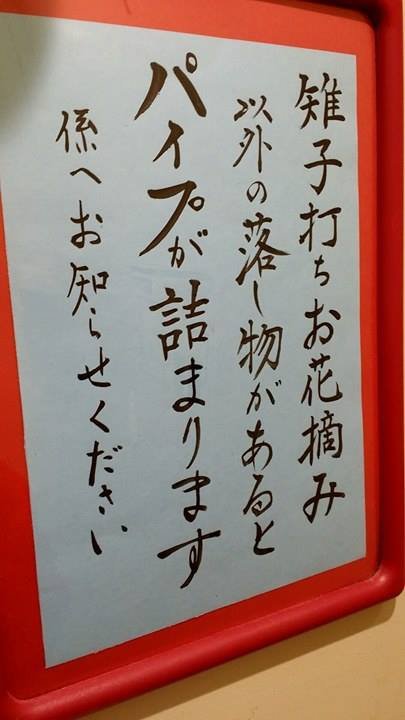 雉子打ちお花摘み
以外の落し物があると
パイプが詰まります
係へお知らせください